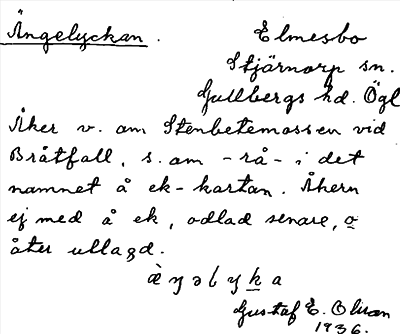 Ängelyckan. Elmesbo
Stjärnorp sn.
Gullbergs hd. Ögl
Åker v. om Stenbetemossen vid
Bråtfall, s. om - rå - i det
namnet å ek-kartan. Åkern
ej med å ek, odlad senare, o
åter ullagd.
Gustaf E. Olson
1936.